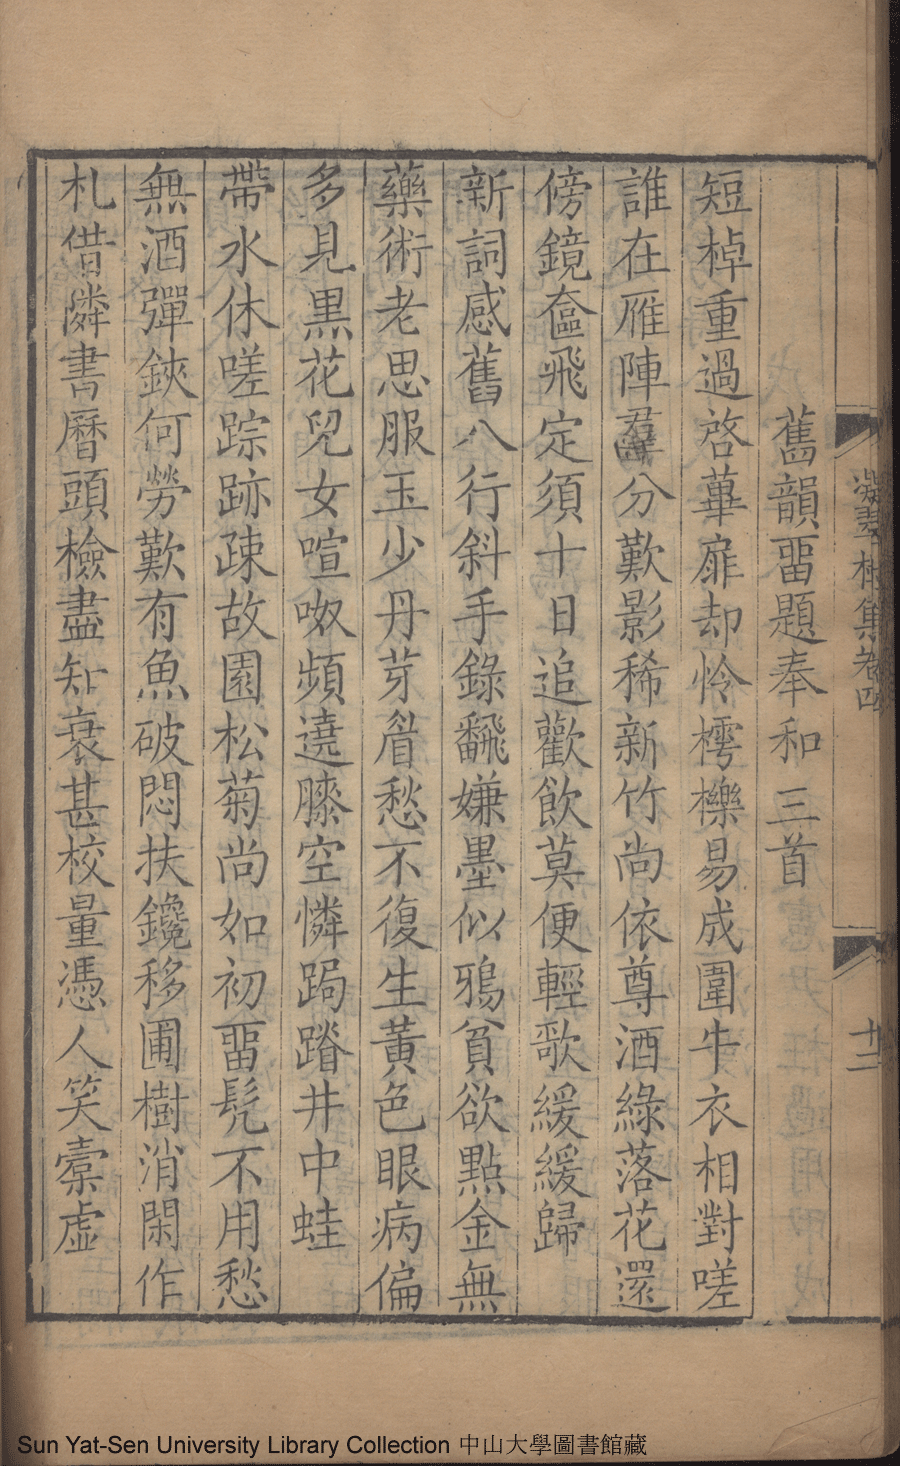 凝翠樓集卷四
十二
舊韻畱題奉和三首
短棹重過啓蓽扉却怜樗櫟易成圍牛衣相對嗟
誰在雁陣羣分歎影稀新竹尚依尊酒綠落花還
傍鏡奩飛定須十日追歡飲莫便輕歌緩緩歸
新詞感舊八行斜手錄飜嫌墨似鴉貧欲點金無
藥術老思服玉少丹芽眉愁不復生黃色眼病偏
多見黑花兒女喧呶頻遶膝空憐跼蹐井中蛙
帶水休嗟踪跡疎故園松菊尚如初畱髡不用愁
無酒彈鋏何勞歎有魚破悶扶鑱移圃樹消閑作
札借隣書曆頭檢盡知衰甚校量憑人笑橐虛
Sun Yat-Sen University Library Collection 中山大學圖書館藏